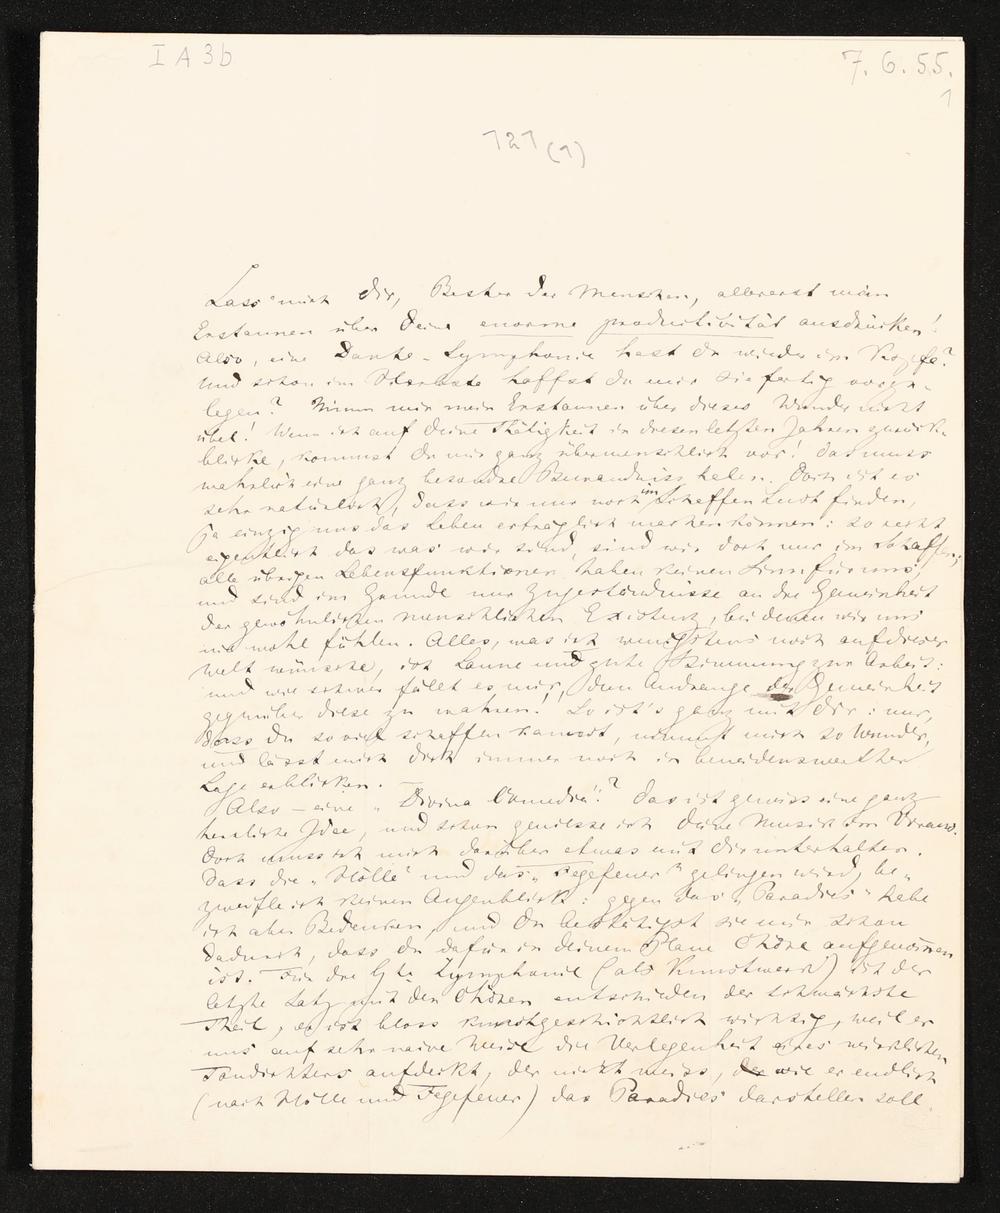 I A 3b
7. 6. 55.
1
121 (1)
Lass' mich Dir, Bester der Menschen, allererst mein
Erstaunen über Deine enorme productivität ausdrücken!
Also, eine Dante-Symphonie hast du wieder im Kopfe?
Und schon im Herbste hoffst du mir sie fertig vorzu-
legen? Nimm mir mein Erstaunen über dieses Wunder nicht
übel! Wenn ich auf deine Thätigkeit in diesen letzten Jahren zurück
blicke, kommst Du mir ganz übermenschlich vor! Das muss
wahrlich eine ganz besondre Bewandniss haben. Doch ist es
sehr natürlich, dass wir nur noch im Schaffen Lust finden,
ja einzig uns das Leben erträglich machen können: so recht
eigentlich das was wir sind, sind wir doch nur im Schaffen;
alle übrigen Lebensfunktionen haben keinen Sinn für uns,
und sind im Grunde nur Zugeständnisse an die Gemeinheit
der gewöhnlichen menschlichen Existenz, bei denen wir uns
nie wohl fühlen. Alles, was ich wenigstens noch auf dieser
Welt wünsche, ist Laune und gute Stimmung zur Arbeit:
und wie schwer fällt es mir, dem Andrange der Gemeinheit
gegenüber diese zu wahren! So ist's ganz mit Dir: nur,
dass du so viel schaffen kannst, nimmt mich so Wunder,
und lässt mich dich immer noch in beneidenswerther
Lage erblicken.
Also – eine „Divina Comedia"? Das ist gewiss eine ganz
herrliche Idee, und schon geniesse ich deine Musik im Voraus.
Doch muss ich mich darüber etwas mit dir unterhalten.
Dass die „Hölle" und das „Fegefeuer" gelingen wird, be-
zweifle ich keinen Augenblick: gegen das „Paradies" habe
ich aber Bedenken, und Du bestätigst sie mir schon
dadurch, dass du dafür in deinem Plane Chöre aufgenommen
ist. Für die 9te Symphonie (als Kunstwerk) ist der
letzte Satz mit den Chören entschieden der schwächste
Theil, er ist bloss kunstgeschichtlich wichtig, weil er
uns auf sehr naive Weise die Verlegenheit eines wirklichen
Tondichters aufdeckt, der nicht weiss, wie er endlich
(nach Hölle und Fegefeuer) das Paradies darstellen soll.